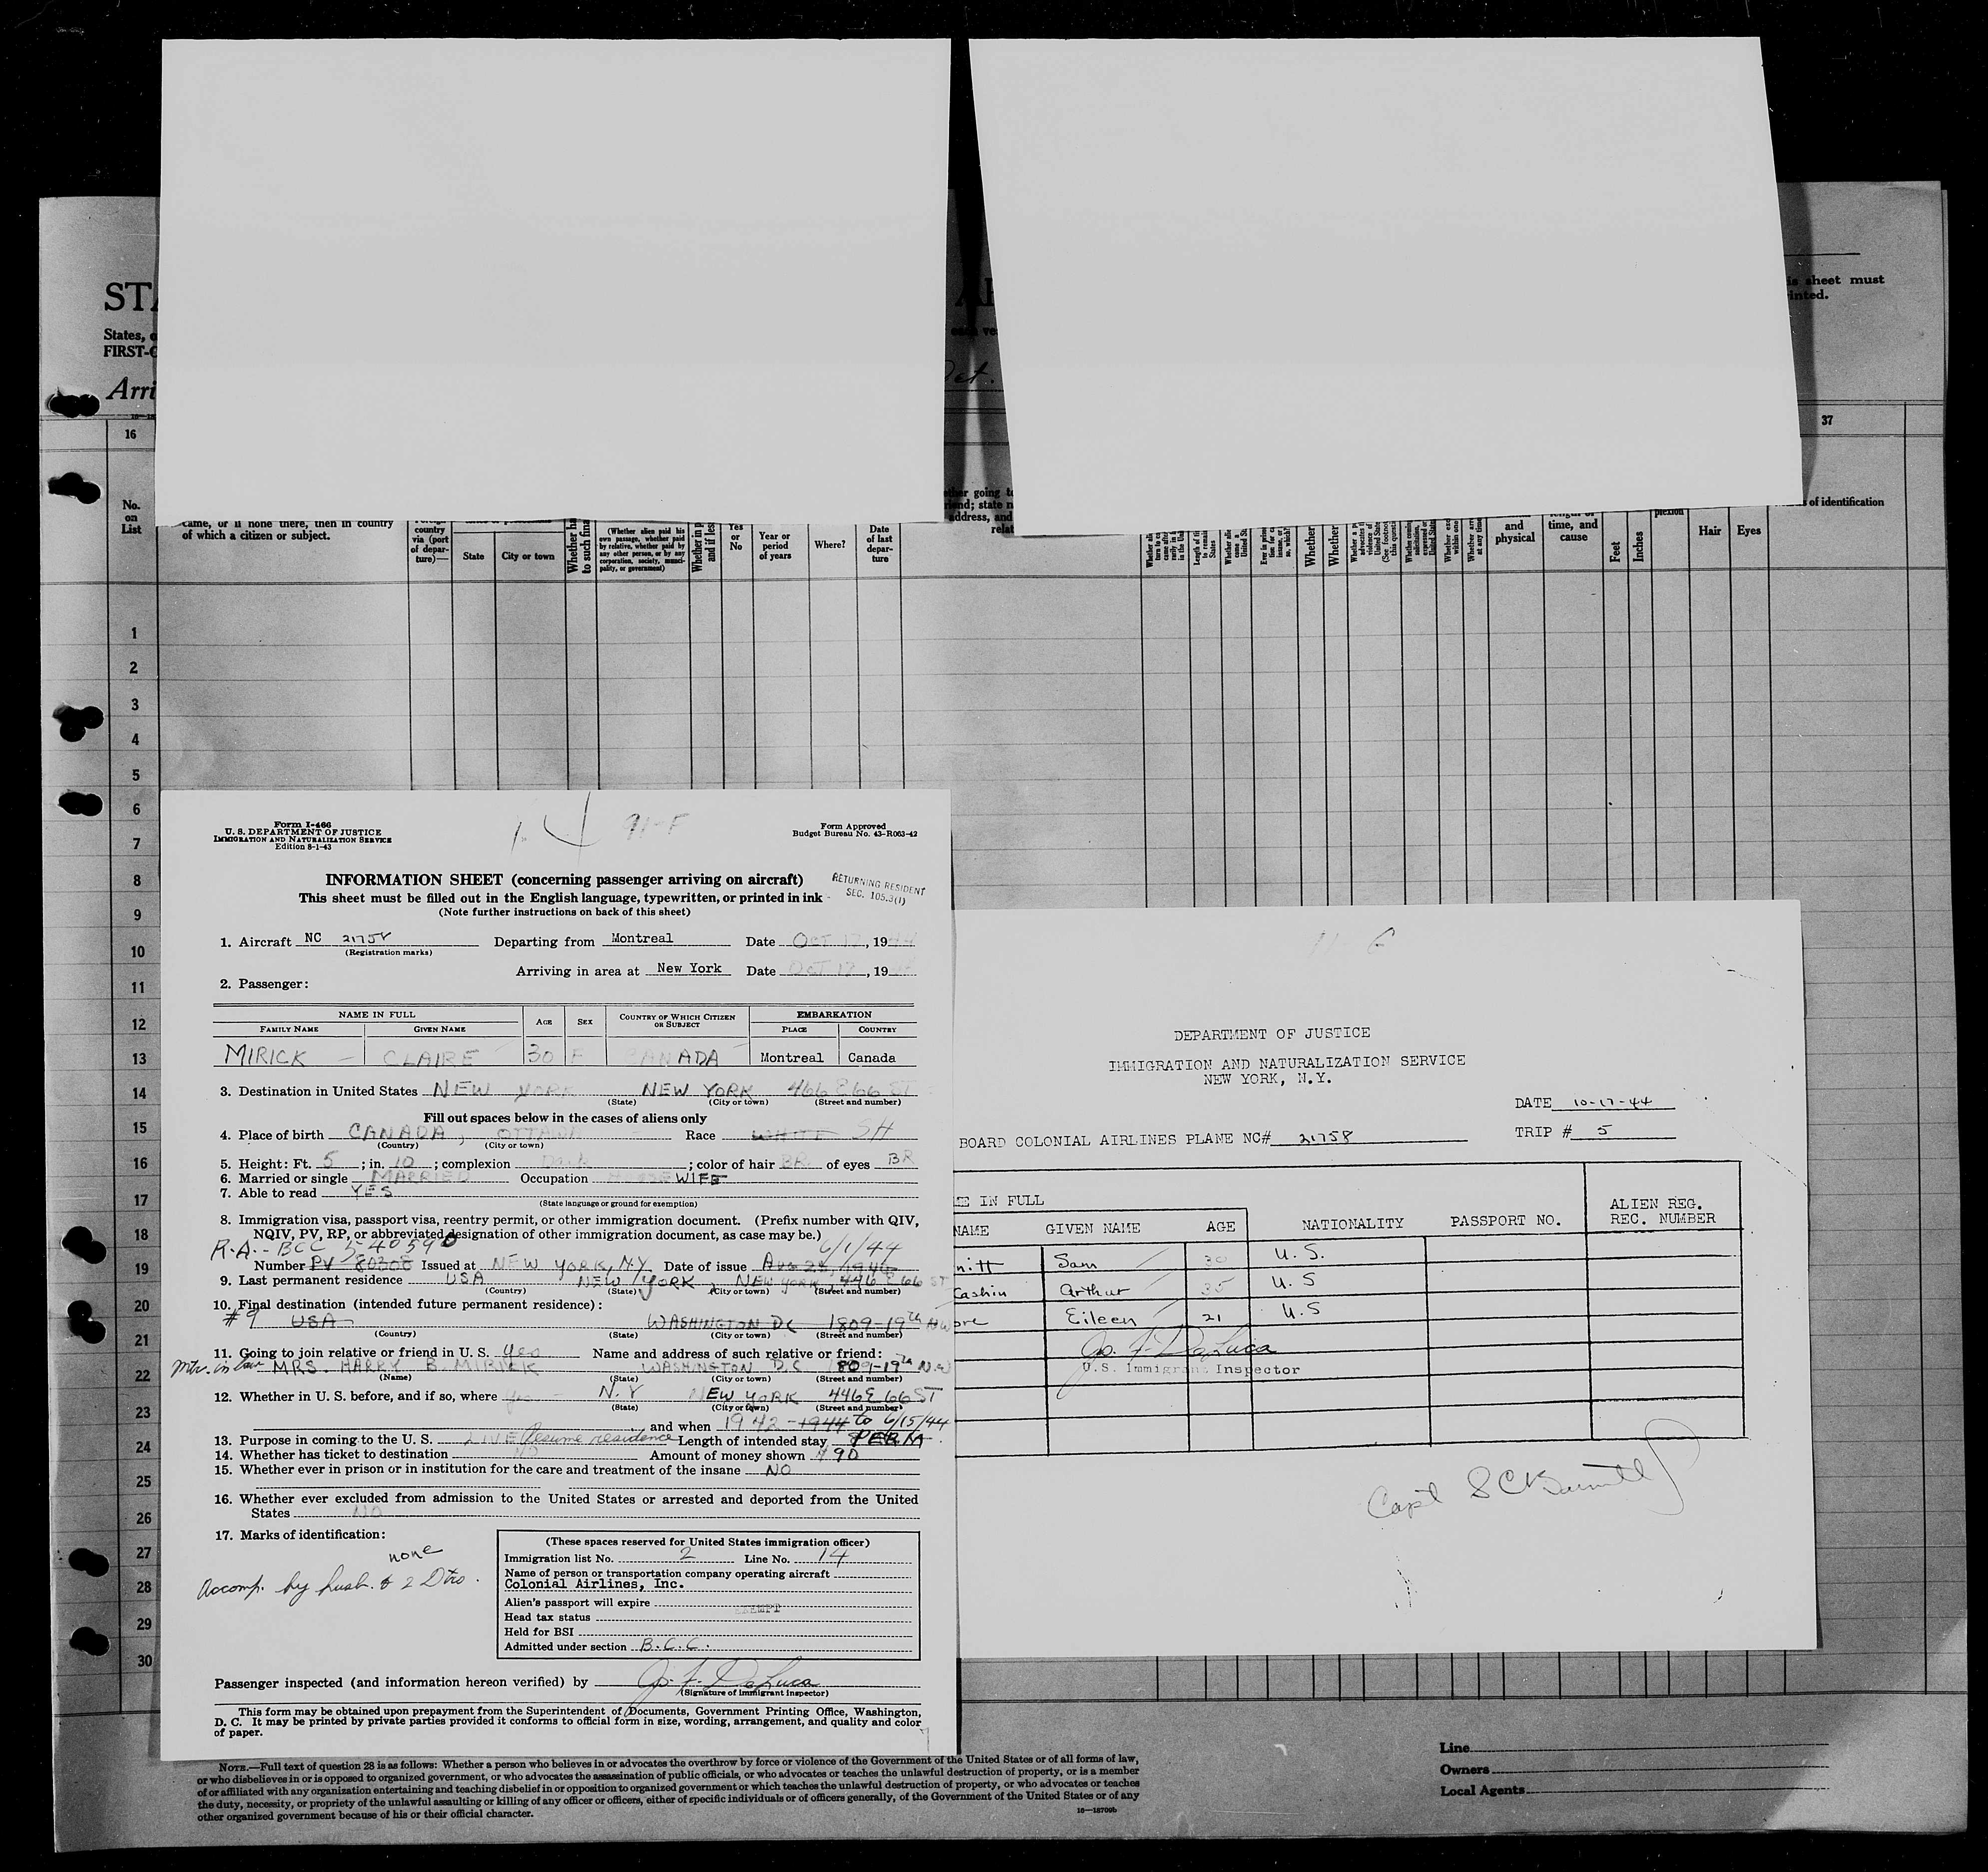 STA
States, o
FIRST-C
Arri
Oct.
is sheet must
inted.
16
37
No.
on
List
came, or if none there, then in country
of which a citizen or subject.
country
via (port
of depar-
ture)—
State
City or town
Whether ha
to such fina
(Whether alien paid his
own passage, whether paid
by relative, whether paid by
any other person, or by any
corporation, society, munici-
pality, or government)
Whether in p
and if less
Yes
or
No
Year or
period
of years
Where?
Date
of last
depar-
ture
ther going to
riend; state n
address, and
relat
Whether
Whether
and
physical
time, and
cause
Feet
Inches
plexion
Hair
Eyes
s of identification
1
2
3
4
5
6
7
8
9
10
11
12
13
14
15
16
17
18
19
20
21
22
23
24
25
26
27
28
29
30
Form I-466
U. S. DEPARTMENT OF JUSTICE
IMMIGRATION AND NATURALIZATION SERVICE
Edition 8-1-43
91-F
Form Approved
Budget Bureau No. 43-R063-42
INFORMATION SHEET (concerning passenger arriving on aircraft)
This sheet must be filled out in the English language, typewritten, or printed in ink
(Note further instructions on back of this sheet)
RETURNING RESIDENT
SEC. 105.3(1)
1. Aircraft NC 21758 Departing from Montreal Date Oct 17, 1944
(Registration marks)
Arriving in area at New York Date Oct 17, 19
2. Passenger:
NAME IN FULL AGE SEX COUNTRY OF WHICH CITIZEN OR SUBJECT EMBARKATION
FAMILY NAME GIVEN NAME PLACE COUNTRY
MIRICK CLAIRE 30 F CANADA Montreal Canada
3. Destination in United States NEW YORK NEW YORK 466 E 66 ST
(State) (City or town) (Street and number)
Fill out spaces below in the cases of aliens only
4. Place of birth CANADA, OTTAWA Race WHITE SH
(Country) (City or town)
5. Height: Ft. 5; in. 10; complexion Dark; color of hair BR. of eyes BR
6. Married or single MARRIED Occupation HOUSEWIFE
7. Able to read YES
(State language or ground for exemption)
8. Immigration visa, passport visa, reentry permit, or other immigration document. (Prefix number with QIV,
NQIV, PV, RP, or abbreviated designation of other immigration document, as case may be.)
R.A.- BCC 5-40590 6/1/44
Number PV 80308 Issued at NEW YORK, N.Y. Date of issue Aug 28, 1944
9. Last permanent residence USA NEW YORK, NEW YORK, 446 E 66 ST
(Country) (State) (City or town) (Street and number)
10. Final destination (intended future permanent residence):
#9 USA WASHINGTON DC 1809-19th NW
(Country) (State) (City or town) (Street and number)
11. Going to join relative or friend in U. S. Yes Name and address of such relative or friend:
Mtr. in law MRS. HARRY B. MIRICK WASHINGTON D.C. 1809-19th N.W
(Name) (State) (City or town) (Street and number)
12. Whether in U. S. before, and if so, where Yes N.Y NEW YORK 446 E 66 ST
(State) (City or town) (Street and number)
and when 1942-1944 to 6/15/44
13. Purpose in coming to the U. S. LIVE Resume residence Length of intended stay PERM.
14. Whether has ticket to destination NO Amount of money shown $90
15. Whether ever in prison or in institution for the care and treatment of the insane NO
16. Whether ever excluded from admission to the United States or arrested and deported from the United
States NO
17. Marks of identification:
none
Accomp. by husb. & 2 Dtrs.
(These spaces reserved for United States immigration officer)
Immigration list No. 2 Line No. 14
Name of person or transportation company operating aircraft
Colonial Airlines, Inc.
Alien's passport will expire
Head tax status EXEMPT
Held for BSI
Admitted under section B.C.C.
Passenger inspected (and information hereon verified) by Jo. F. DeLuca
(Signature of immigrant inspector)
This form may be obtained upon prepayment from the Superintendent of Documents, Government Printing Office, Washington,
D. C. It may be printed by private parties provided it conforms to official form in size, wording, arrangement, and quality and color
of paper.
DEPARTMENT OF JUSTICE
IMMIGRATION AND NATURALIZATION SERVICE
NEW YORK, N.Y.
DATE 10-17-44
BOARD COLONIAL AIRLINES PLANE NC# 21758 TRIP # 5
ME IN FULL
NAME GIVEN NAME AGE NATIONALITY PASSPORT NO. ALIEN REG. REC. NUMBER
nitt Sam 30 U.S.
Cashin Arthur 35 U.S
ore Eileen 21 U.S
Jo. F. DeLuca
U.S. Immigrant Inspector
Capt
NOTE.—Full text of question 28 is as follows: Whether a person who believes in or advocates the overthrow by force or violence of the Government of the United States or of all forms of law,
or who disbelieves in or is opposed to organized government, or who advocates the assassination of public officials, or who advocates or teaches the unlawful destruction of property, or is a member
of or affiliated with any organization entertaining and teaching disbelief in or opposition to organized government or which teaches the unlawful destruction of property, or who advocates or teaches
the duty, necessity, or propriety of the unlawful assaulting or killing of any officer or officers, either of specific individuals or of officers generally, of the Government of the United States or of any
other organized government because of his or their official character.
16—18709b
Line
Owners
Local Agents